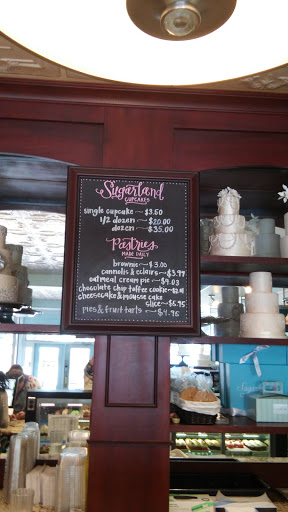 Sugarland
CUPCAKES
single cupcake ~ $3.50
1/2 dozen ~ $20.00
dozen ~ $35.00
Pastries
MADE DAILY
brownie ~ $3.00
cannolis & eclairs ~ $3.99
oatmeal cream pie ~ $4.03
chocolate chip toffee cookie ~
cheesecake & mousse cake
slice ~ $5.95
pies & fruit tarts ~ $4.95